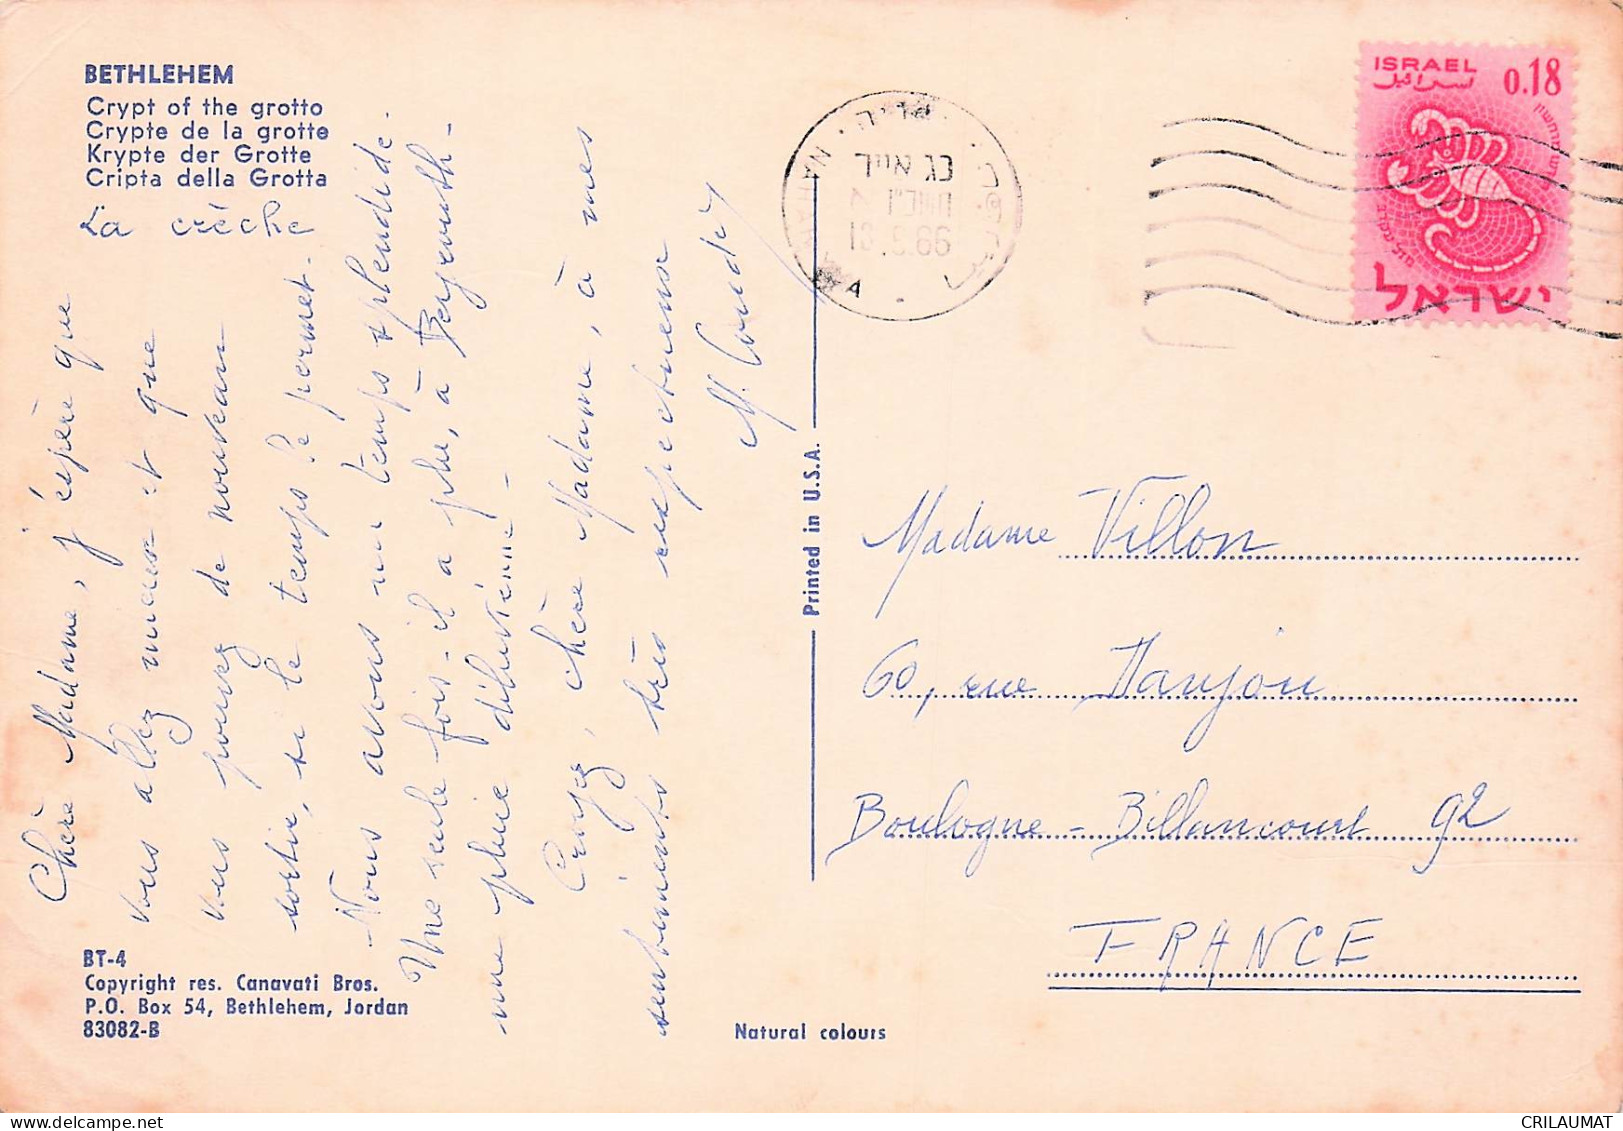 BETHLEHEM
Crypt of the grotto
Crypte de la grotte
Krypte der Grotte
Cripta della Grotta
La crèche
Chère Madame, j'espère que
vous allez mieux et que
vous pouvez de nouveau
sortir, si le temps le permet.
Nous avons un temps splendide.
Une seule fois il a plu, à Beyrouth -
une pluie diluvienne -
Croyez, chère Madame, à mes
sentiments très respectueux
BT-4
Copyright res. Canavati Bros.
P.O. Box 54, Bethlehem, Jordan
83082-B
Printed in U.S.A.
Natural colours
NAHARIYA
נהריה
כג אייר
ISRAEL
0.18
اسرائيل
ישראל
Madame Villon
60, rue
Boulogne - Billancourt 92
FRANCE
CRILAUMAT